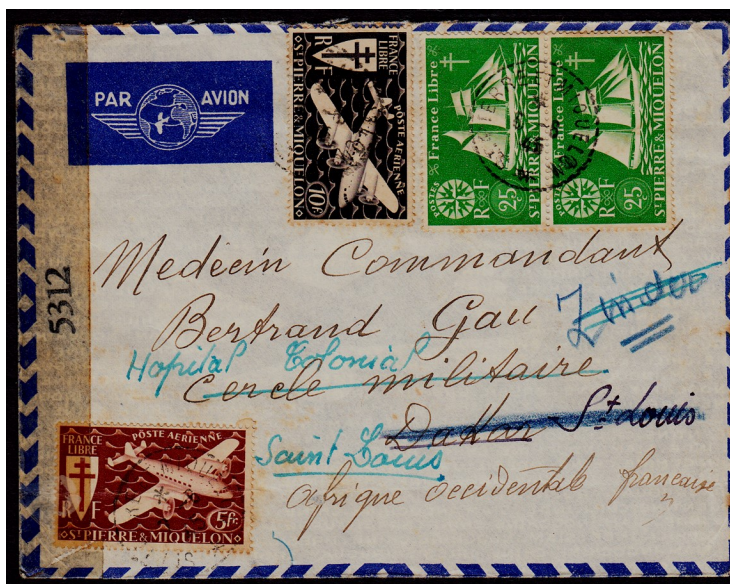 PAR AVION
FRANCE LIBRE
RF
POSTE AERIENNE
10F
ST PIERRE & MIQUELON
POSTE France Libre
RF 25c
ST PIERRE & MIQUELON
POSTE France Libre
RF 25c
ST PIERRE & MIQUELON
5312
Medecin Commandant
Bertrand Gau
Zinder
Hopital Colonial
Cercle militaire
Dakar St Louis
Saint Louis
Afrique Occidental française
FRANCE LIBRE
POSTE AERIENNE
RF
5Fr.
ST PIERRE & MIQUELON